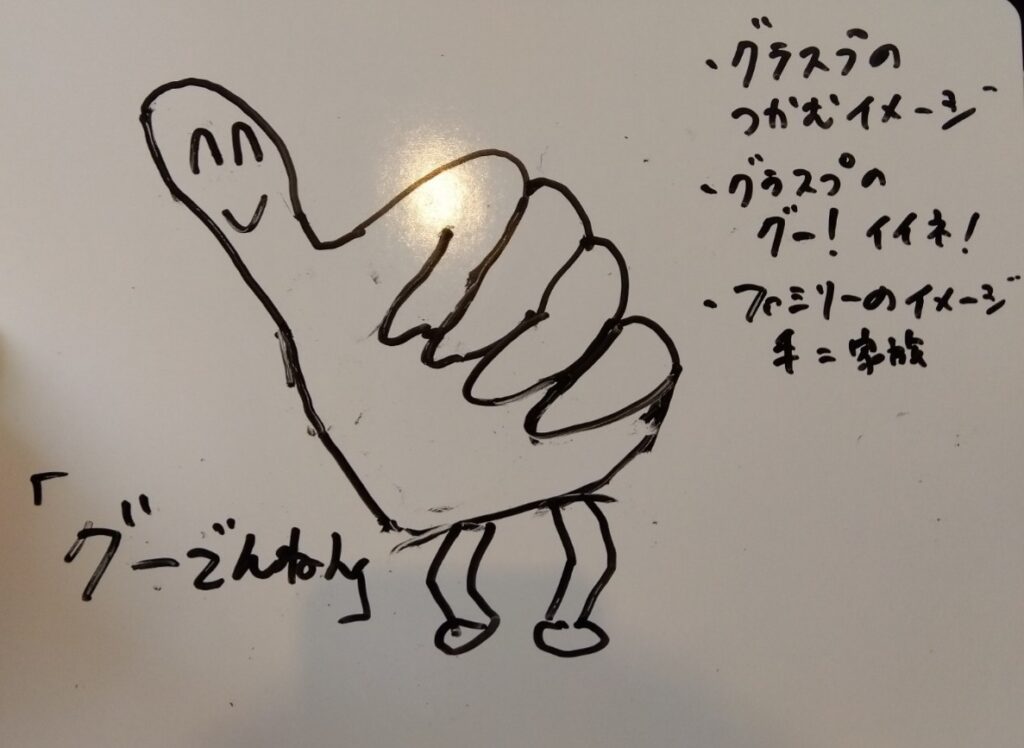 ・グラスプの
つかむイメージ
・グラスプの
グー！イイネ！
・ファミリーのイメージ
手＝家族
「グーでんねん」